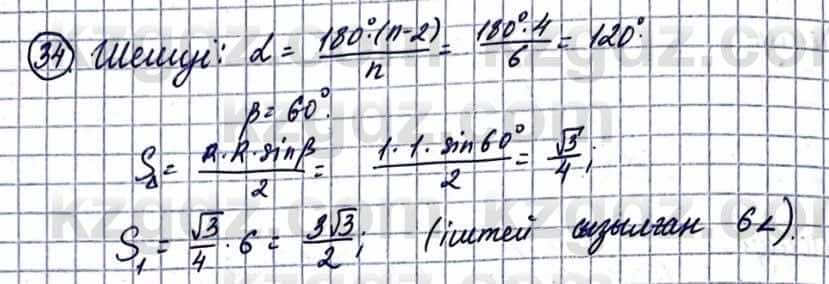 34. Шешуі: α = 180°·(n-2)/n = 180°·4/6 = 120°.
β = 60°.
S△ = R·R·sinβ/2 = 1·1·sin60°/2 = √3/4;
S₁ = √3/4 · 6 = 3√3/2; (іштей сызылған 6∠).